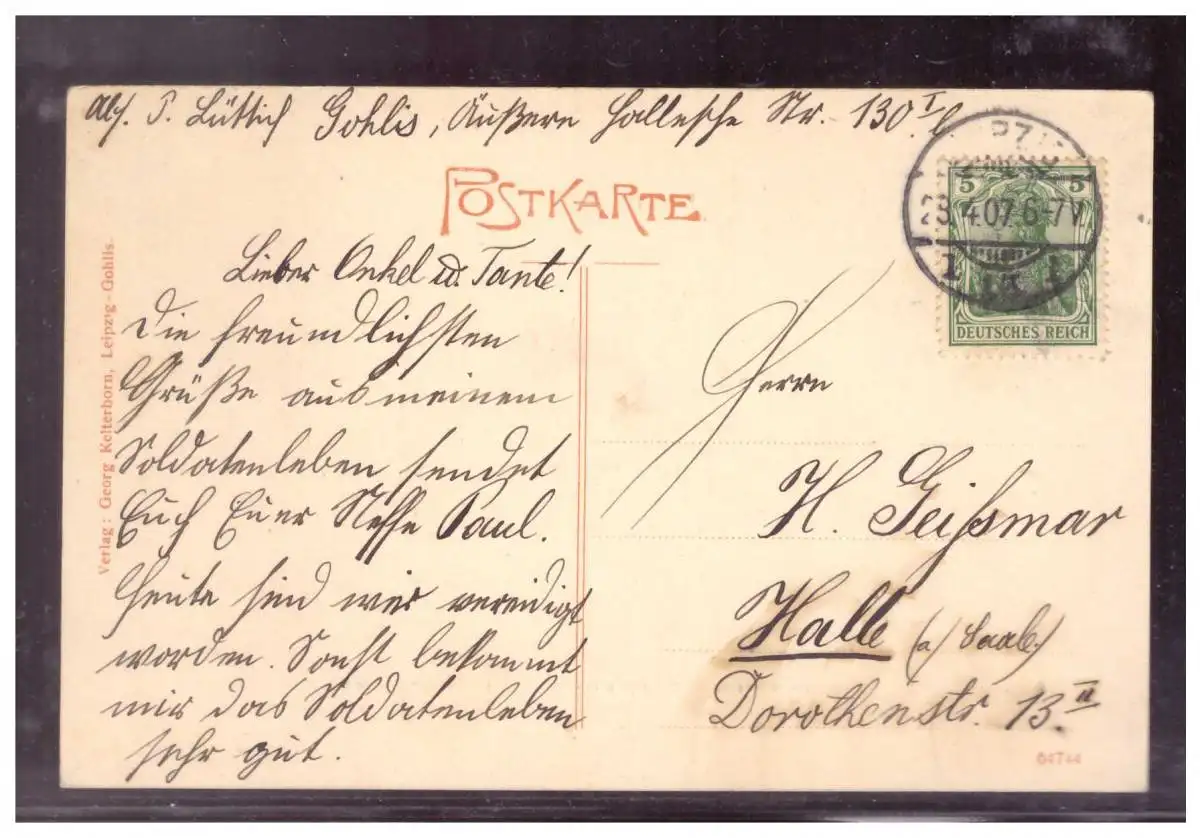 Abs. P. Lüttich Gohlis, Äußere Hallesche Str. 130 I l.
POSTKARTE
Lieber Onkel u. Tante!
Die freundlichsten
Grüße aus meinem
Soldatenleben sendet
Euch Euer Neffe Paul.
Heute sind wir vereidigt
worden. Sonst bekommt
mir das Soldatenleben
sehr gut.
Verlag: Georg Kelterborn, Leipzig-Gohlis.
5 5
DEUTSCHES REICH
4.07.6-7V
1
Herrn
H. Geißmar
Halle (a/ Saale)
Dorotheenstr. 13 II